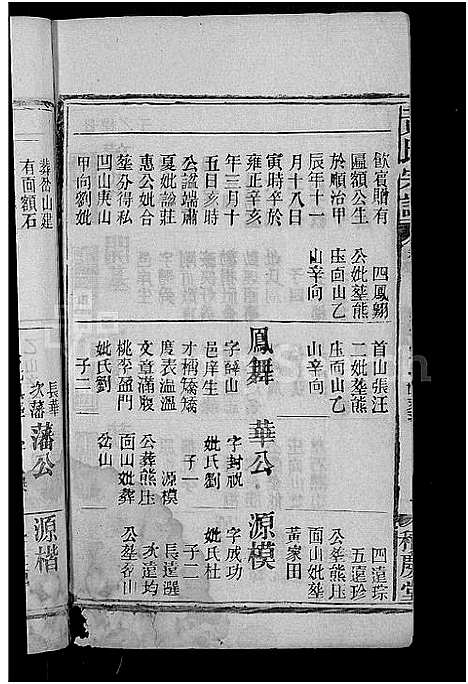 飲賓贈有
匾額公生
於順治甲
辰年十一
月十八日
寅時卒於
雍正辛亥
年三月十
五日亥時
公諡端肅
夏妣諡莊
惠公妣合
塟分得私
凹山庚山
甲向劉妣
四鳳翱
公妣塟熊
庄面山乙
山辛向
首山張汪
二妣塟熊
庄面山乙
山辛向
子四
鳳舞
字薛山
邑庠生
才稱矯矯
度表温温
文章滿腹
桃李盈門
妣氏劉
子二
華公
字封祝
妣氏劉
子一
源模
公葬熊庄
面山妣葬
岔山
四遠琮
五遠珍
公塟熊庄
面山妣塟
黃家田
源模
字成功
妣氏杜
子二
長遠選
次遠均
公塟岔山
葬岔山建
有面額石
長華
次藩
藩公
源楷